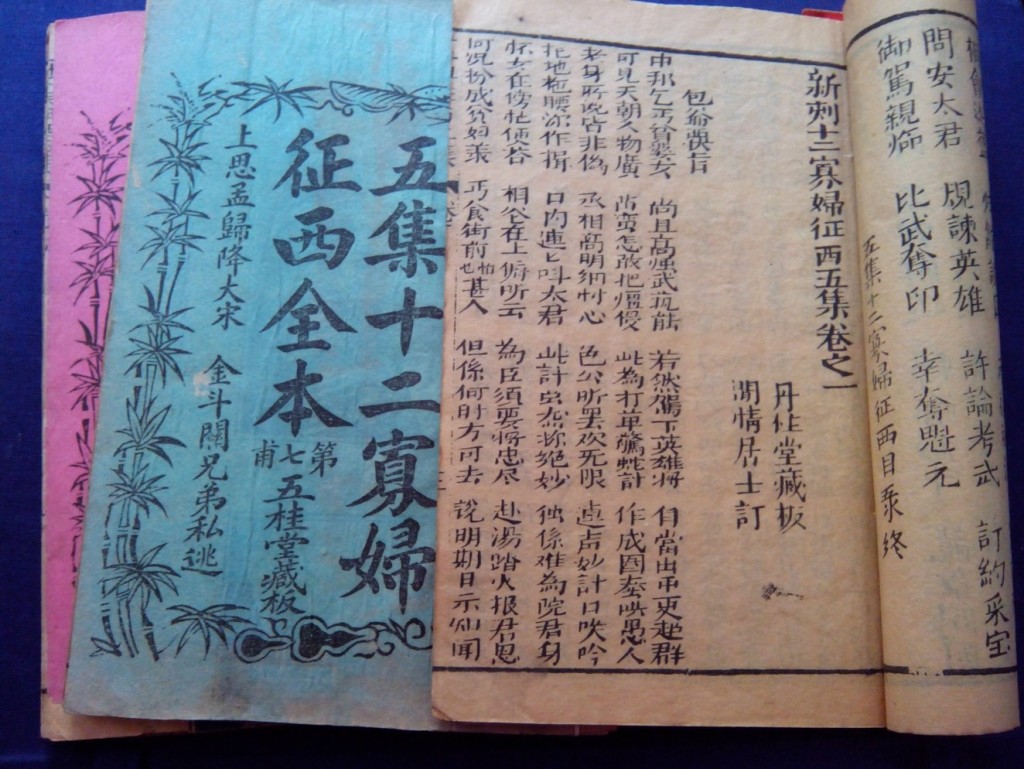 問安太君 諫英雄 許論考武 訂約采宝
御駕親臨 比武奪印 幸奪魁元
五集十二寡婦征西目录終
新刻十二寡婦征西五集卷之一
丹桂堂藏板
閒情居士訂
包爺 旨
乞丐貧婆女 尚且高強武执能 若然駕下英雄将 自當出甲更超群
可見天朝人物廣 番蛮怎敢把疆侵 此為打草驚蛇計 作成圈套哄愚人
老身所说皆非偽 丞相高明細忖心 包公听罢欢无限 連声妙計口吟吟
地 腰深作揖 口内連乚叫太君 此計果然你絕妙 独係难為院君身
女在傍忙便答 相爷在上俯听云 為臣須要将忠尽 赴湯踏火报君恩
何况扮成貧妇 丐食街前 甚人 但係何时方可去 說明期日示知聞
五集十二寡婦
征西全本
第七甫
五桂堂藏板
上思孟歸降大宋
金斗關兄弟私逃